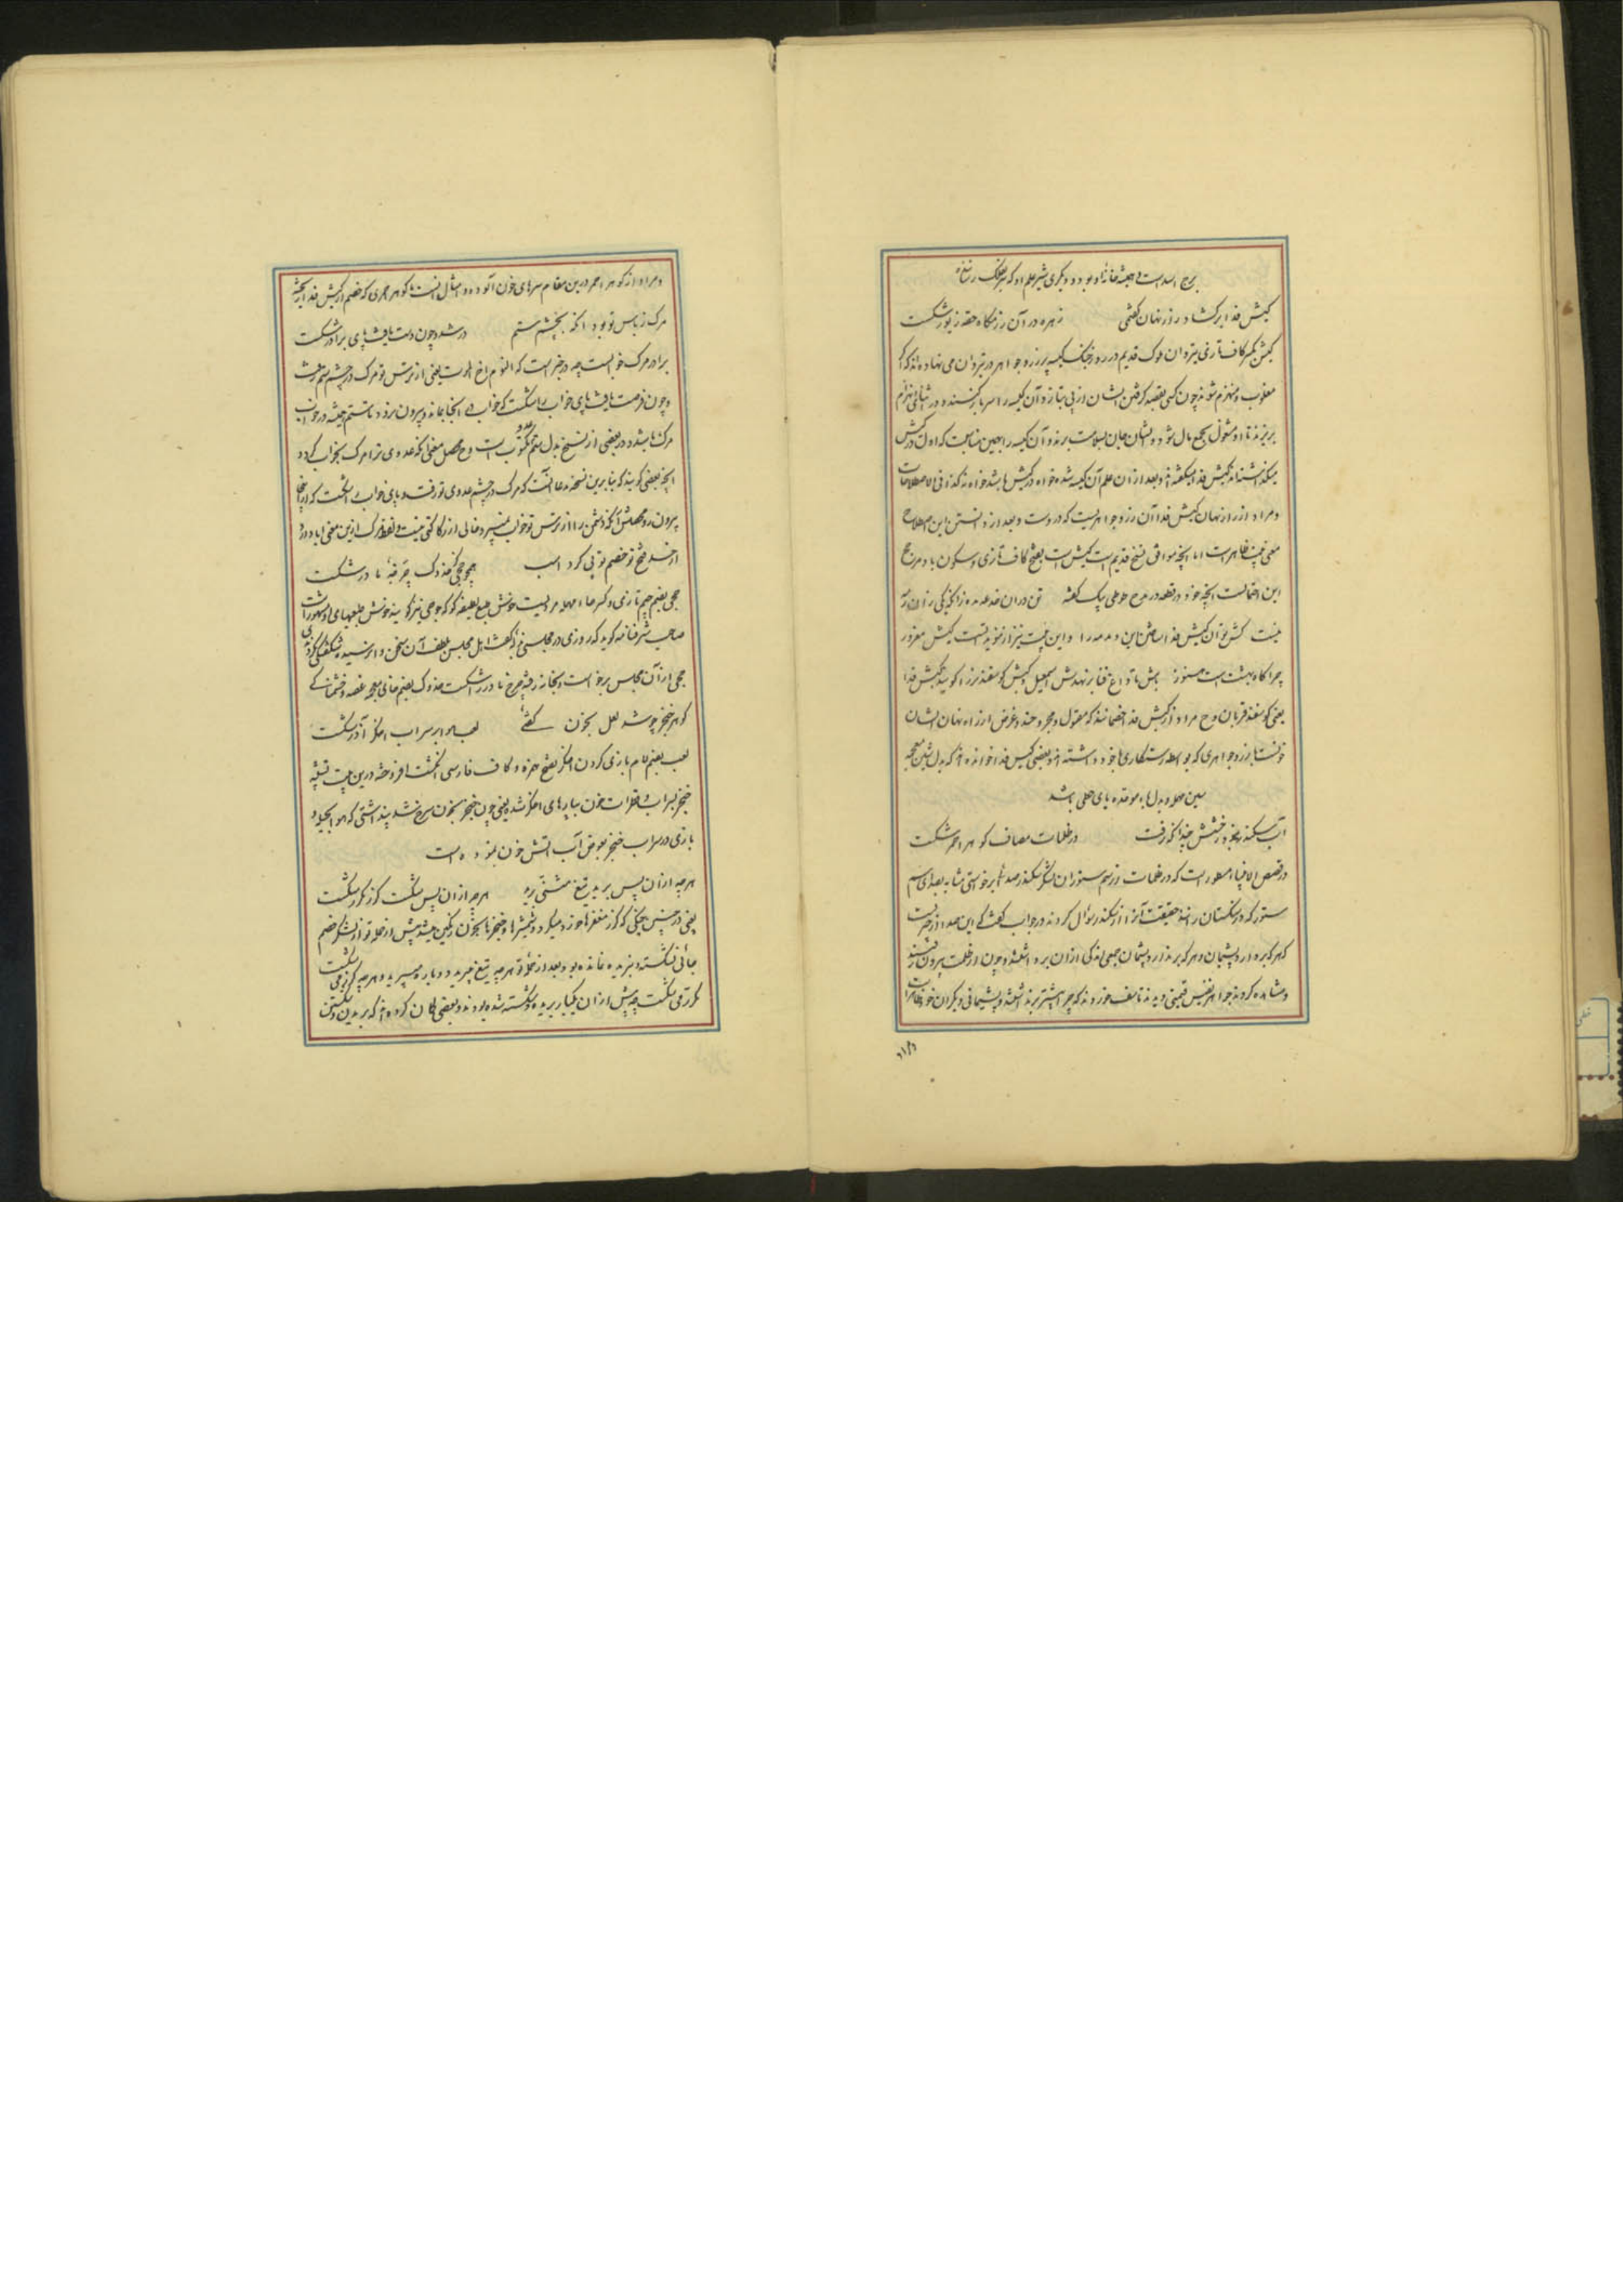 برج اسد است که همیشه خانه او بود و دیگری شیر علم او که بر فلک رفته
کیش فدا برکشاد راز نهان کفتمی زهره در آن رزمکاه حقه زیور شکست
کیش بکسر کاف تازی تیردان ملوک قدیم در روز جنک کیسه پر زر و جواهر در تیردان می نهاده اند که اکر
مغلوب و منهزم شوند چون کسی بقصد کرفتن ایشان از پی بتازد آن کیسه را سر باز کنند و در اثنای انهزام
بریزند تا او مشغول بجمع مال شود و ایشان جان بسلامت برند و آن کیسه را بهمین مناسبت که اول در کیش
میکذاشته اند کیش فدا میکفته اند و بعد از آن علم آن کیسه شده خواه در کیش باشد خواه نه کذا فی الاصطلاحات
و مراد از راز نهان کیش فدا آن زر و جواهریست که در اوست و بعد از دانستن این اصطلاح
معنی بیت ظاهر است اما آنچه موافق نسخ قدیم است کبش است بفتح کاف تازی و سکون با و مرجح
این احتمالست آنچه خود در قطعه در مدح طوطی بیک کفته
بیت کبش
چراکاه بهشت است هنوز
یعنی کوسفند قربان و ح مراد از کبش فدا خصمانند که مقتول و مجروحند و غرض از راز نهان ایشان
خونست یا زر و جواهری که بواسطه رستکاری با خود داشته اند و بعضی کیس فدا خوانده اند که بدل شین معجمه
سین مهمله و بدل باء موحده یای حطی باشد
آب سکندر بخورد خشمش چندانکه رفت در ظلمات مصاف کوهر احمر شکست
در قصص الانبیا مسطور است که در ظلمات از سم ستوران لشکر سکندر صدائی برخواستی مشابه بصدای سم
ستور که در سنکستان رانند حقیقت آنرا از سکندر سؤال کردند در جواب کفت که این صدا از چیزیست
که هر که بردارد پشیمان و هر که برندارد پشیمان جمعی اندکی از آن برداشتند و چون از ظلمت بیرون آمدند
و مشاهده کردند جواهر نفیس قیمتی دیدند تاسف خوردند که چرا بیشتر برنداشتند و پشیمانی دیکران خود ظاهر است
و مراد از کوهر احمر درین مقام سرهای خون آلوده و امثال آنست یا کوهر احمری که خصم از کیش فدا ریخته
مرک ز باس تو بود آنکه بچشم ستم در شد و چون دست یافت پای برادر شکست
برادر مرک خوابست چه در خبر است که النوم اخ الموت یعنی از ترس تو مرک در چشم ستم رفت
و چون فرصت یافت پای خواب را شکست که خواب در آنجا بماند و بیرون نرود تا ستم همیشه در خواب
مرک باشد و در بعضی از نسخ بدل ستم عدو مکتوب است و ح محصل معنی آنکه عدوی ترا مرک بخواب کرد و
آنچه بعضی کویند که بنابرین نسخه مدعا آنست که مرک در چشم عدوی تو رفت و پای خواب را شکست که از آنجا
بیرون رود محصلش آنکه دشمن را از ترس تو خواب نمیبرد خالی از رکاکتی نیست و لفظ مرک ازین معنی ابا دارد
از حسد فتح تو خصم تو پی کرد اسب همچو جحی کز خدوک چرخه مادر شکست
جحی بضم جیم تازی و کسر حاء مهمله مردیست خوش طبع لطیفه کو که جوحی نیز کویند خوش طبعیهای او مشهور است
صاحب شرفنامه کوید که روزی در مجلسی سخنی کفت اهل مجلس بلطف آن سخن وانرسیده شکفتکی نکردند
جحی از آن مجلس برخواست و بخانه رفته چرخ مادر را شکست خدوک بضم خای معجمه غصه و خشمناکی
کوهر خنجر چو شد لعل بخون کفتئی لعب هوا بر سراب اخکر آذر شکست
لعب بضم لام بازی کردن اخکر بفتح همزه و کاف فارسی انکشت افروخته درین بیت تشبیه
خنجر بسراب و قطرات خون بپارهای اخکر شده یعنی چون خنجر بخون سرخ شد پنداشتی که هوا بحیله و
بازی در سراب خنجر بعوض آب آتش خون نموده است
هرچه از آن پس برید تیغ مثنی برید هرچه از آن پس شکست کرز مکرر شکست
یعنی در چنین جنکی که کرز مغفرها خورد میکرد و شمشیرها و خنجرها بخون رنکین میشد پیش از حمله تو از لشکر خصم
جائی نشکسته و نبریده نمانده بود بعد از حمله تو هرچه تیغ میبرید دوباره میبرید و هرچه کرز می شکست
مکرر می شکست چه پیش از آن یکبار بریده و شکسته شده بودند و بعضی کمان کرده اند که بریدن و شکستن